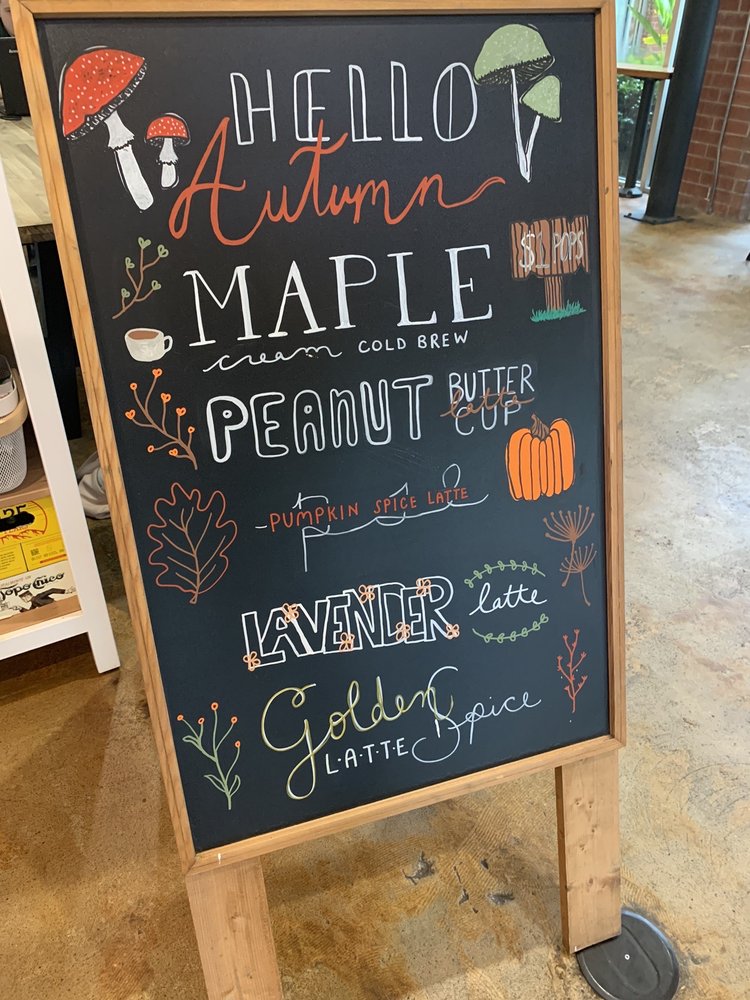 HELLO
Autumn
MAPLE
cream COLD BREW
$1 POPS
PEANUT BUTTER CUP
latte
psl
PUMPKIN SPICE LATTE
LAVENDER latte
Golden Spice
L·A·T·T·E
Topo Chico